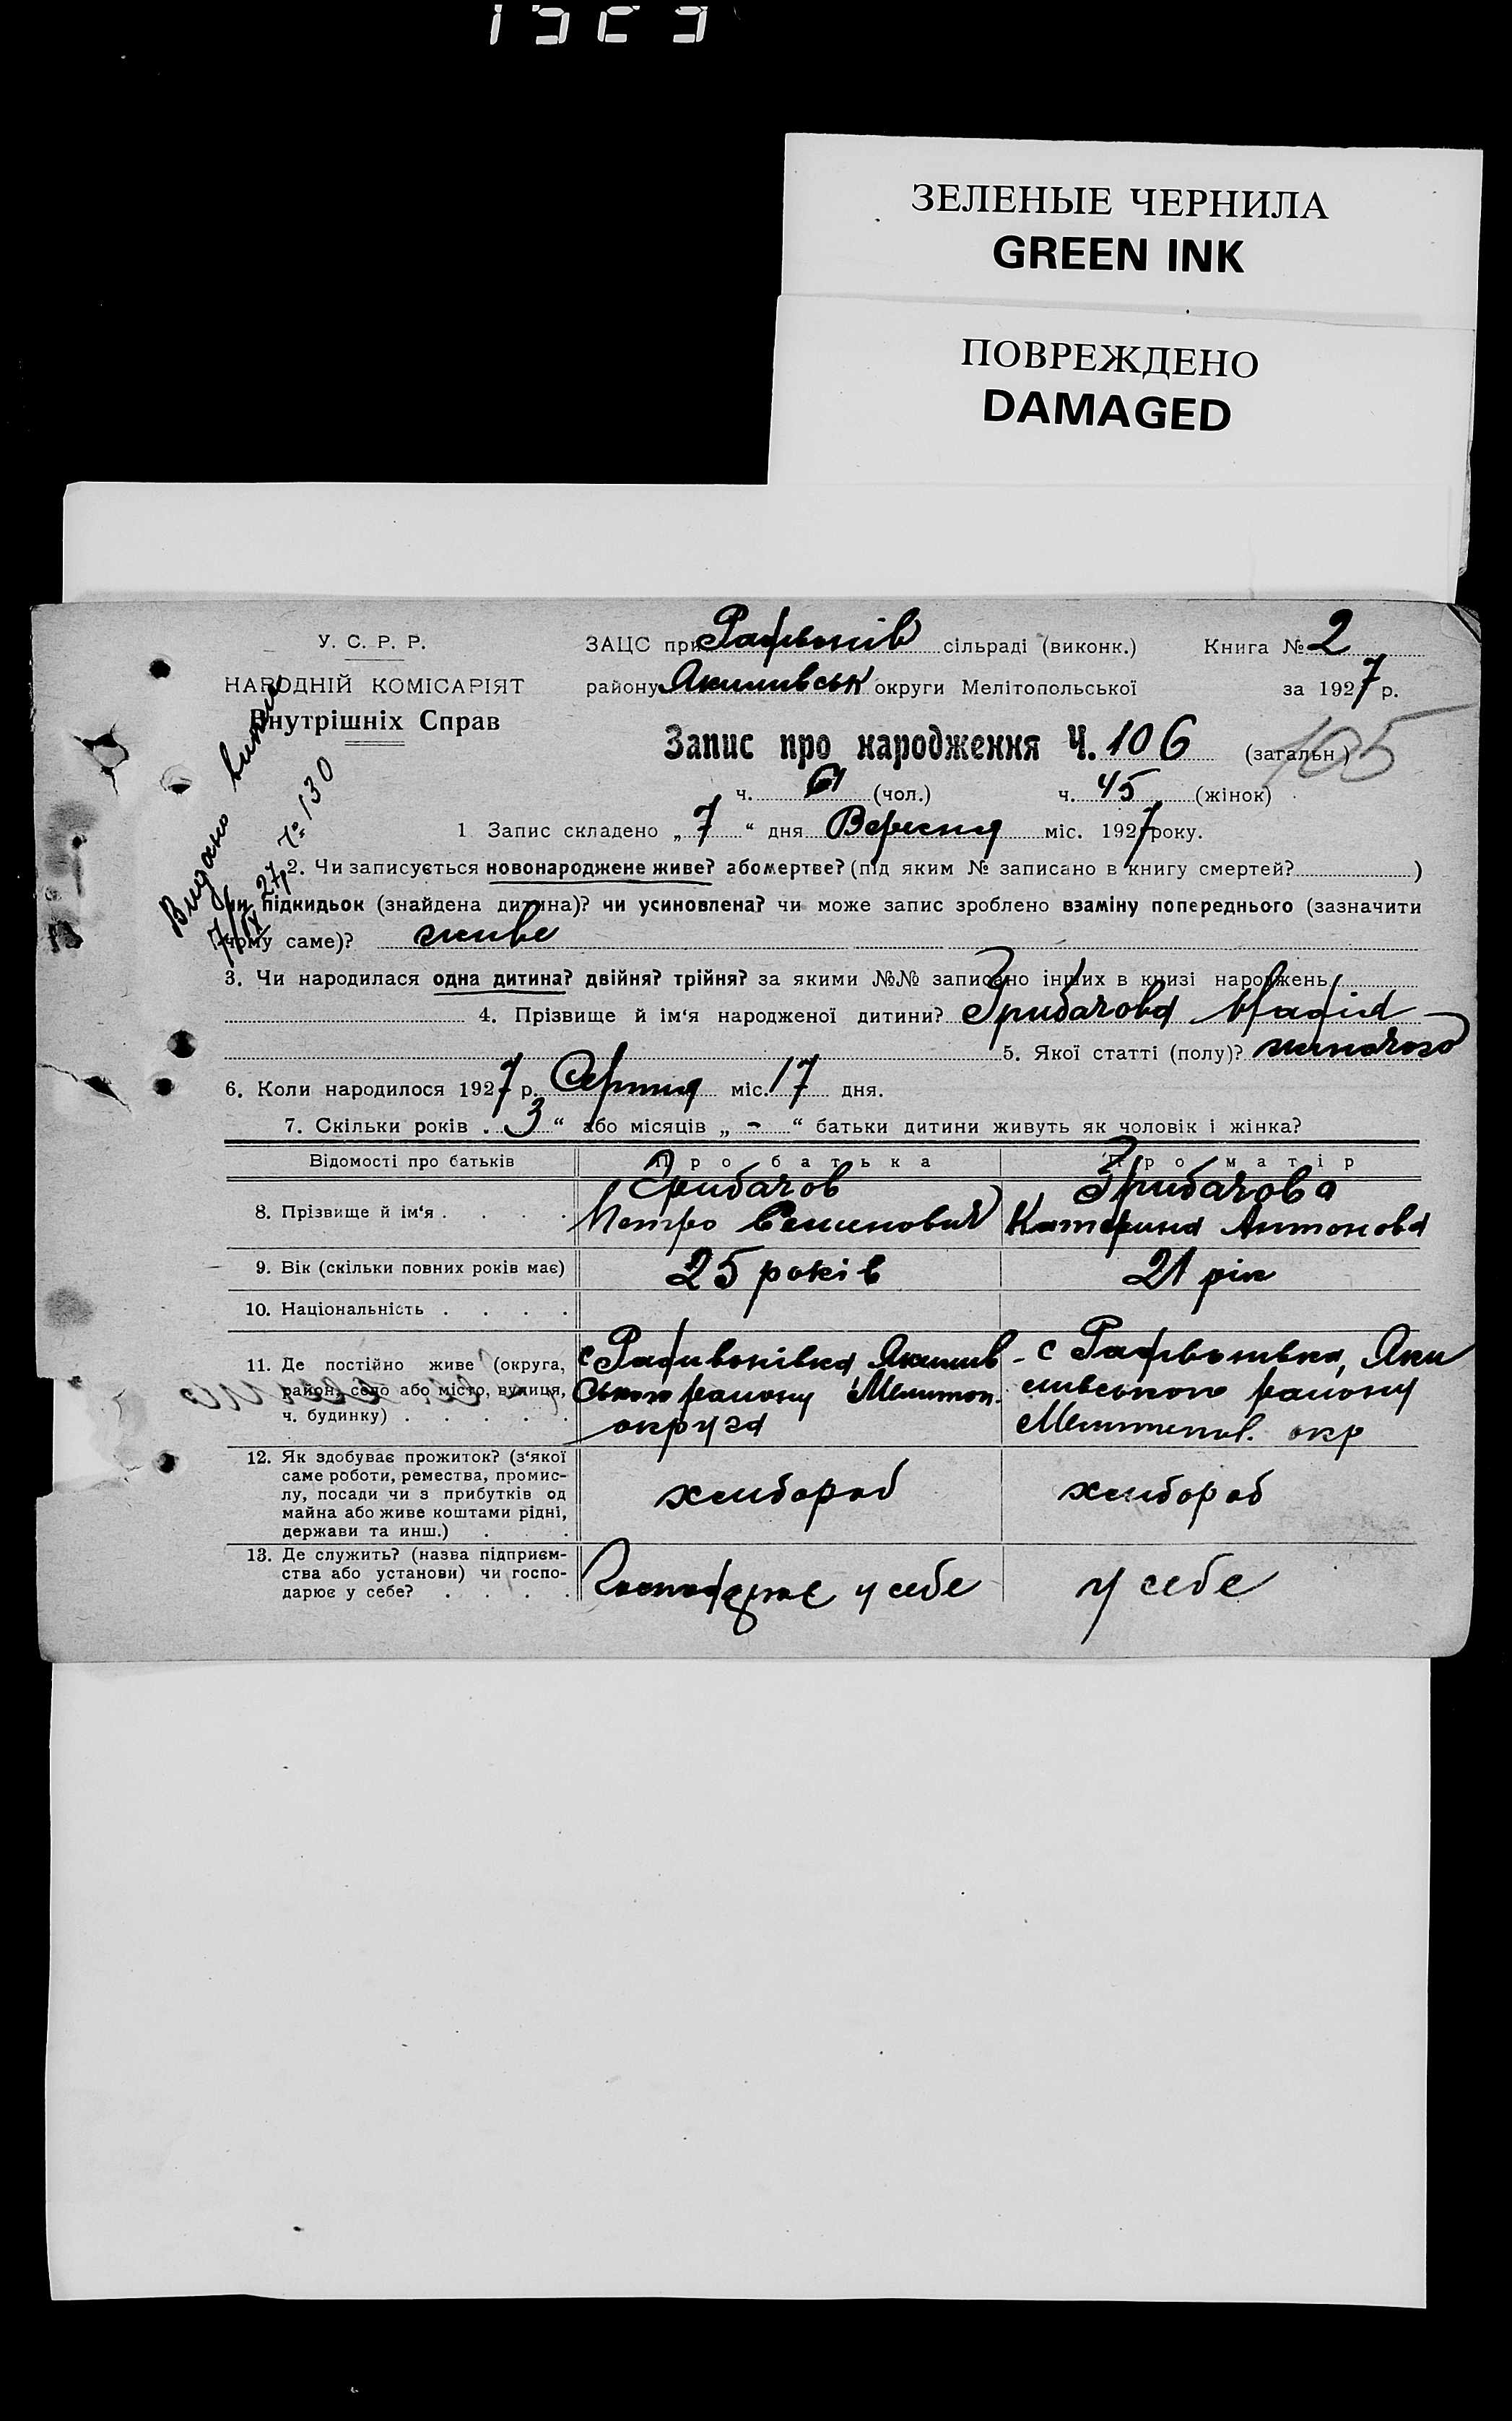 ЗЕЛЕНЫЕ ЧЕРНИЛА
GREEN INK
ПОВРЕЖДЕНО
DAMAGED
У. С. Р. Р.
НАРОДНІЙ КОМІСАРІЯТ
Внутрішніх Справ
ЗАЦС при сільраді (виконк.) Книга № 2
району Якимивськ округи Мелітопольської за 1927 р.
Запис про народження Ч. 106 (загальн.) 105
ч. (чол.) ч. 45 (жінок)
Видано
№ 130
1 Запис складено „ 7 “ дня Вересня міс. 1927 року.
2. Чи записується новонароджене живе? або мертве? (під яким № записано в книгу смертей? )
чи підкидьок (знайдена дитина)? чи усиновлена? чи може запис зроблено взаміну попереднього (зазначити
чому саме)? живе
3. Чи народилася одна дитина? двійня? трійня? за якими №№ записано інших в книзі народжень
4. Прізвище й ім‘я народженої дитини? Грибачова
5. Якої статті (полу)? жиночого
6. Коли народилося 1927 р. Серпня міс. 17 дня.
7. Скільки років . 3 “ або місяців „ - “ батьки дитини живуть як чоловік і жінка?
Відомості про батьків Про батька Про матір
8. Прізвище й ім‘я . . . . Грибачов Грибачова
Петро Семенович Катерина Антонова
9. Вік (скільки повних років має) 25 років 21 рік
10. Національність . . . .
11. Де постійно живе (округа, район, село або місто, вулиця, ч. будинку) . . . . .
с Якимив
ського району Мелитоп.
округа
с Яки
мивського району
Мелитопол. окр
12. Як здобуває прожиток? (з‘якої саме роботи, ремества, промис-
лу, посади чи з прибутків од
майна або живе коштами рідні,
держави та инш.) . . .
хлибороб хлибороб
13. Де служить? (назва підприєм-
ства або установи) чи госпо-
дарює у себе? . . . .
Господарює у себе у себе